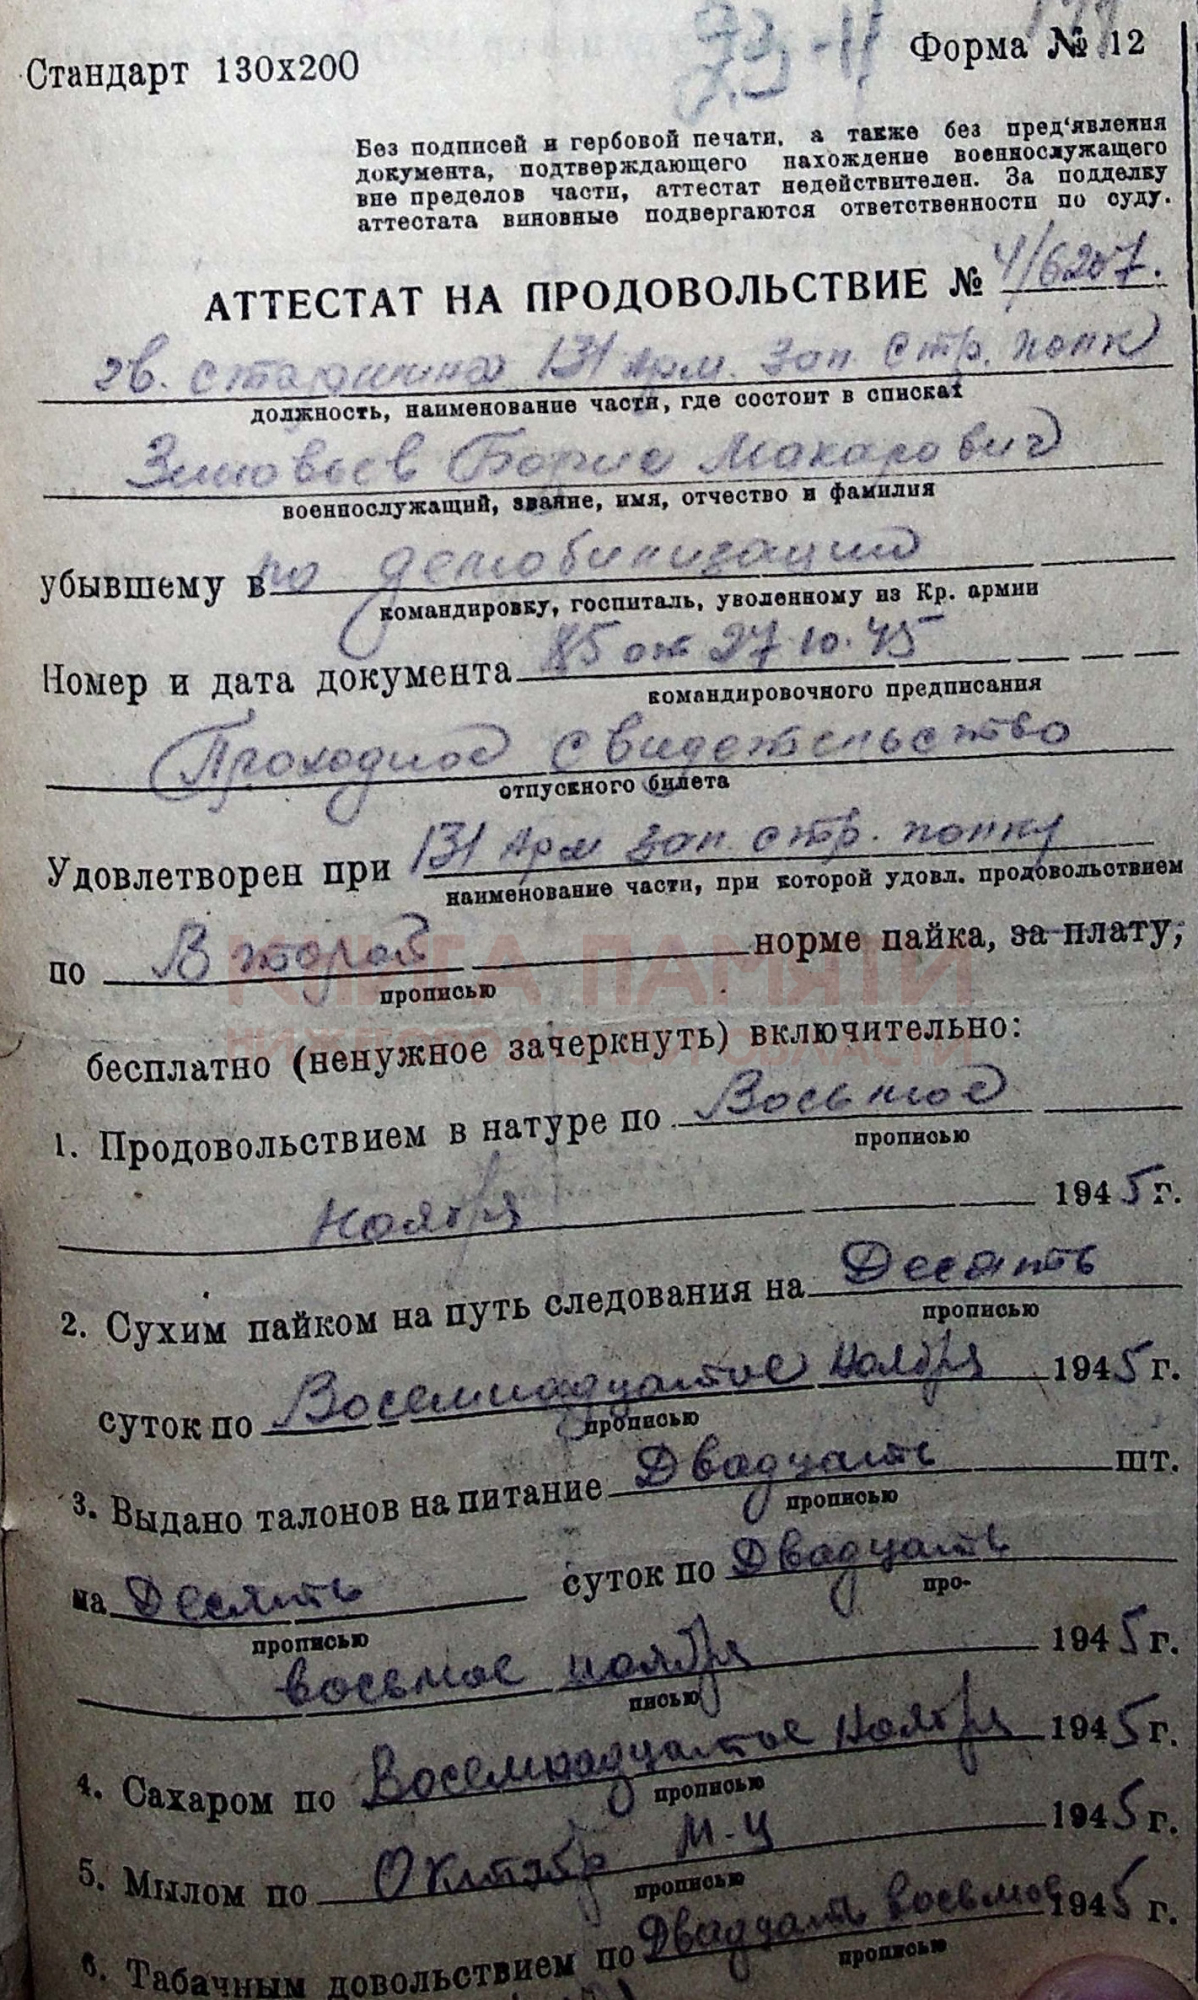 Стандарт 130х200
Форма № 12
Без подписей и гербовой печати, а также без пред'явления
документа, подтверждающего нахождение военнослужащего
вне пределов части, аттестат недействителен. За подделку
аттестата виновные подвергаются ответственности по суду.
АТТЕСТАТ НА ПРОДОВОЛЬСТВИЕ № 4/6207.
гв. старшина 131 Арм. Зап. Стр. полк
должность, наименование части, где состоит в списках
Зиновьев Борис Макарович
военнослужащий, звание, имя, отчество и фамилия
убывшему в по демобилизации
командировку, госпиталь, уволенному из Кр. армии
Номер и дата документа 85 от 27.10.45
командировочного предписания
Проходное свидетельство
отпускного билета
Удовлетворен при 131 Арм Зап. стр. полку
наименование части, при которой удовл. продовольствием
по Второй норме пайка, за плату,
прописью
КНИГА ПАМЯТИ
НИЖЕГОРОДСКОЙ ОБЛАСТИ
бесплатно (ненужное зачеркнуть) включительно:
1. Продовольствием в натуре по Восьмое
прописью
Ноября 1945 г.
2. Сухим пайком на путь следования на Десять
прописью
суток по Восемнадцатое Ноября 1945 г.
прописью
3. Выдано талонов на питание Двадцать шт.
прописью
на Десять суток по Двадцать
прописью про-
восьмое ноября 1945 г.
писью
4. Сахаром по Восемнадцатое Ноября 1945 г.
прописью
5. Мылом по Октябр м-ц 1945 г.
прописью
6. Табачным довольствием по Двадцать восьмое 1945 г.
прописью